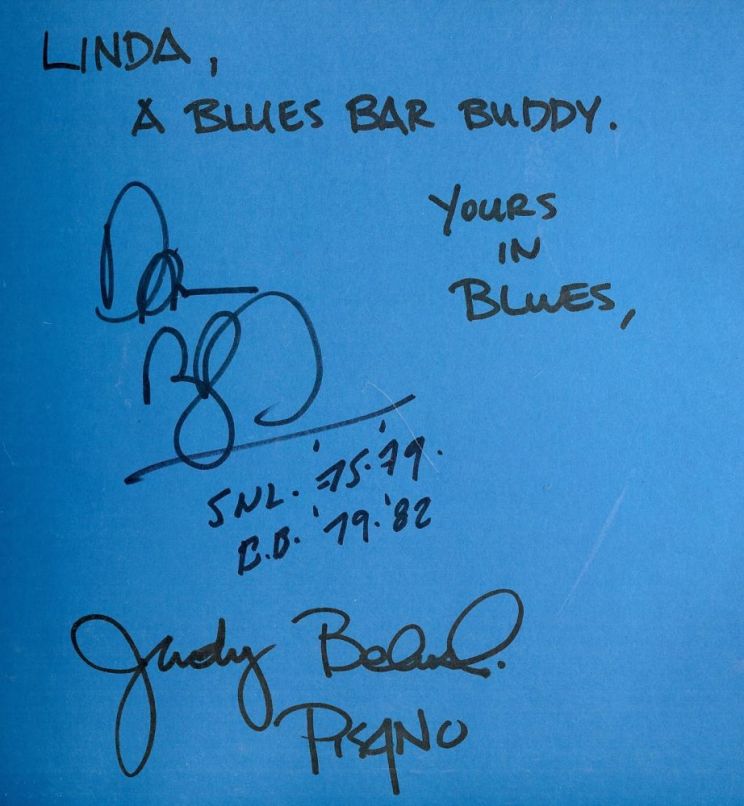 LINDA,
A BLUES BAR BUDDY.
YOURS
IN
BLUES,
Dan
SNL. '75-'79.
B.B. '79-'82
Judy Belushi
PISANO